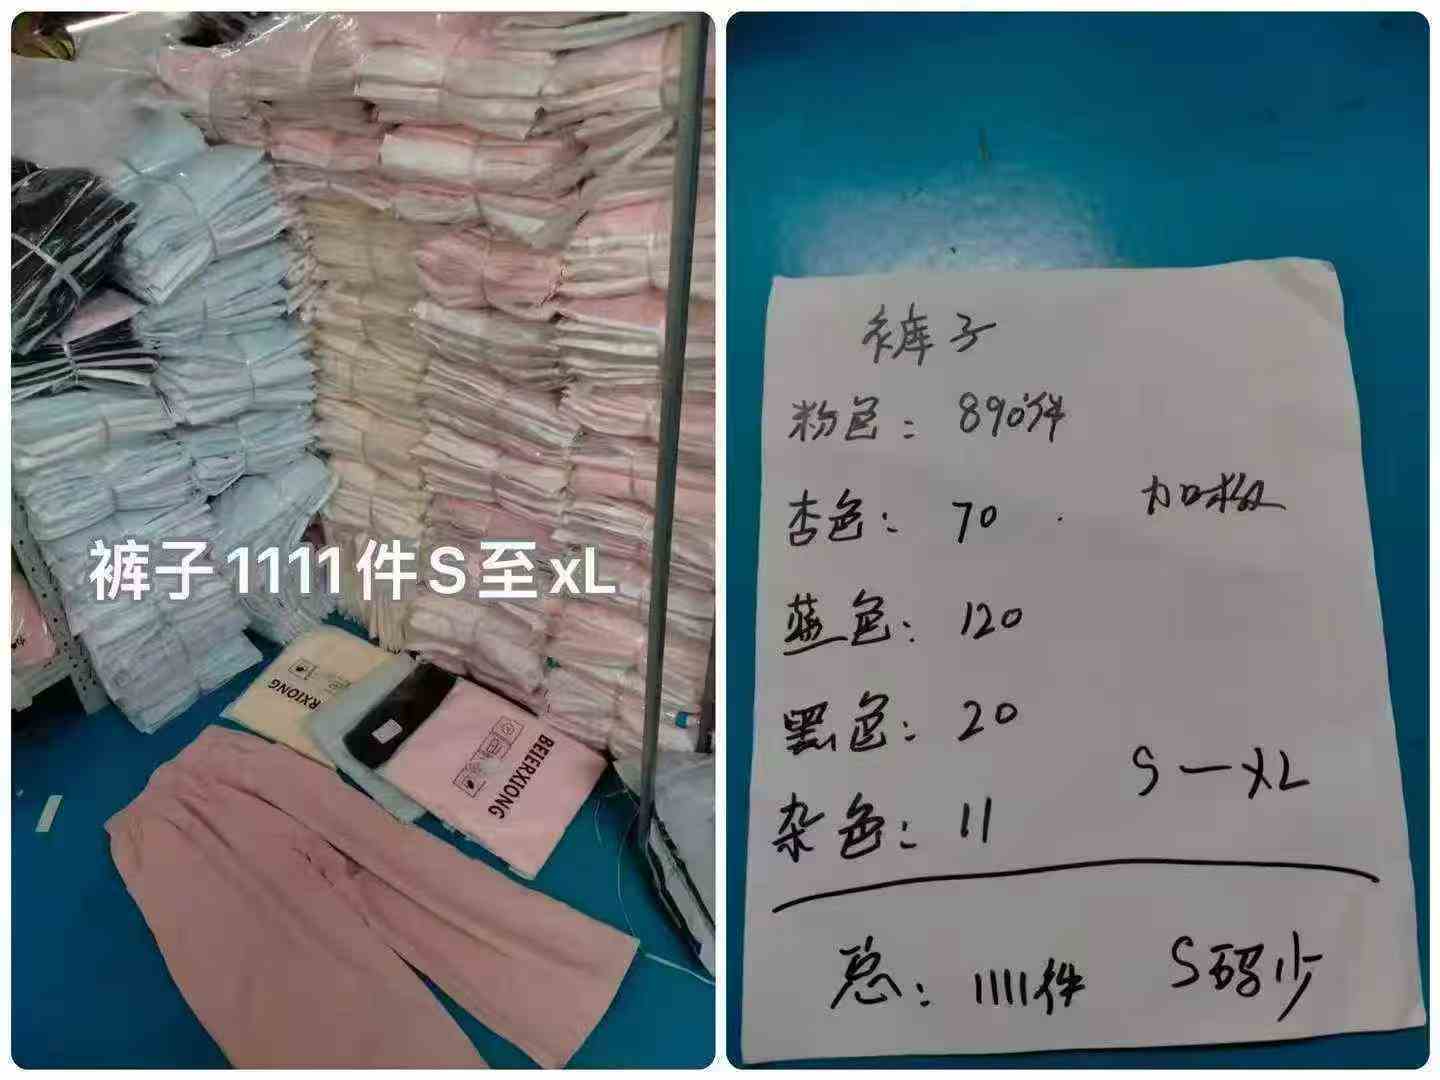 裤子1111件S至xL
RXIONG
RXI
BEIERXIONG
裤子
粉色：890件
杏色：70
加散
蓝色：120
黑色：20
S—XL
杂色：11
总：1111件
S码少